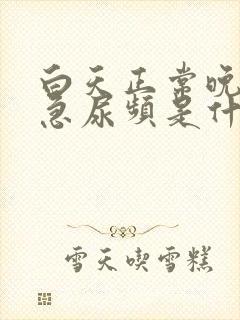 白天正常晚
急尿頻是什
雪天喫雪糕